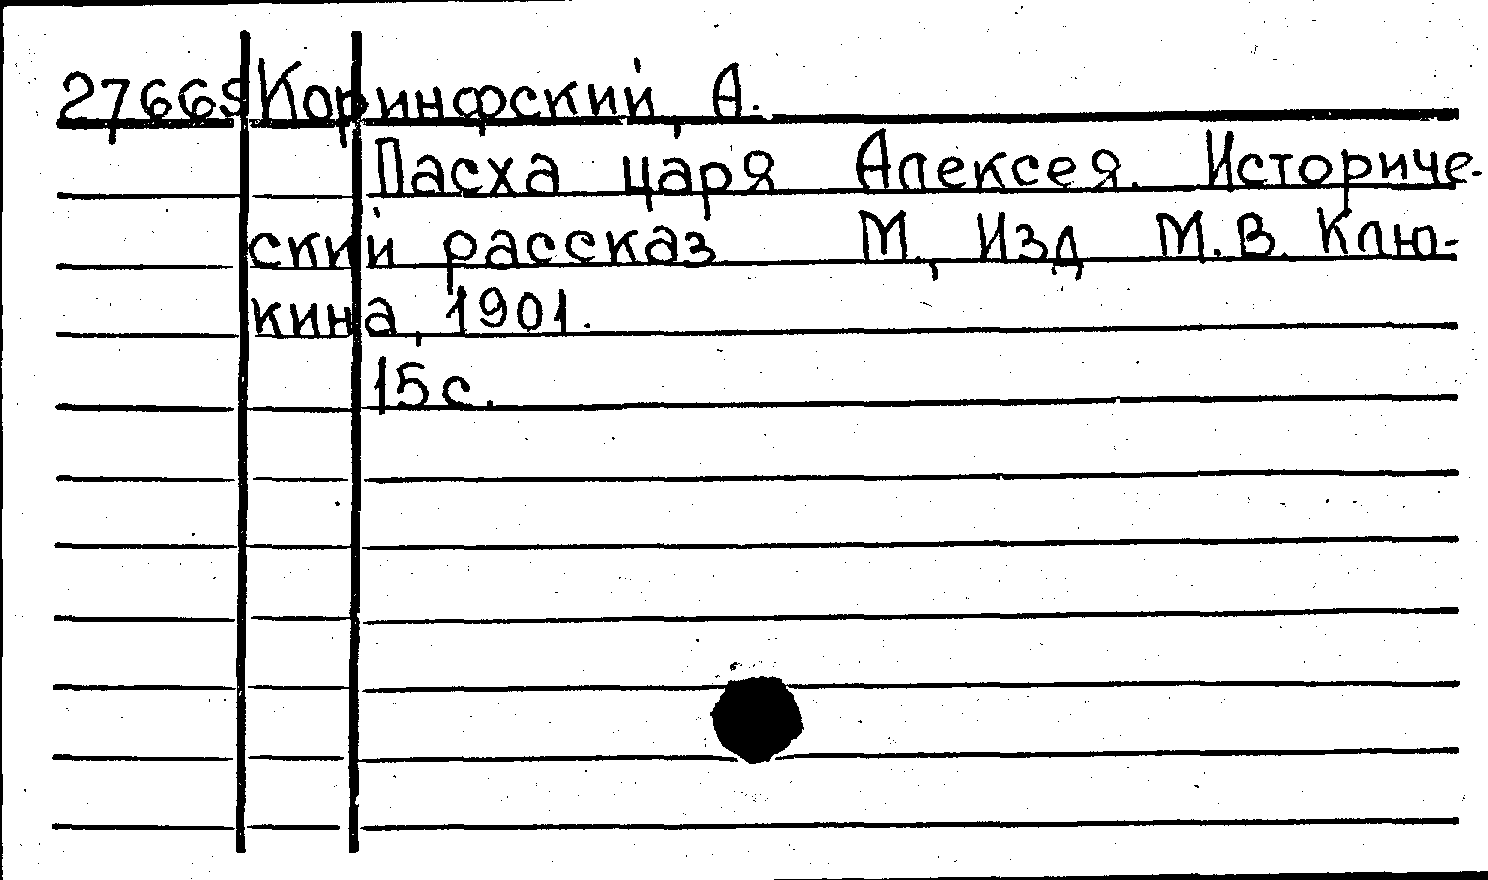 27669 Коринфский, А.
Пасха царя Алексея. Историче-
ский рассказ М., Изд М.В. Клю-
кина, 1901.
15 с.